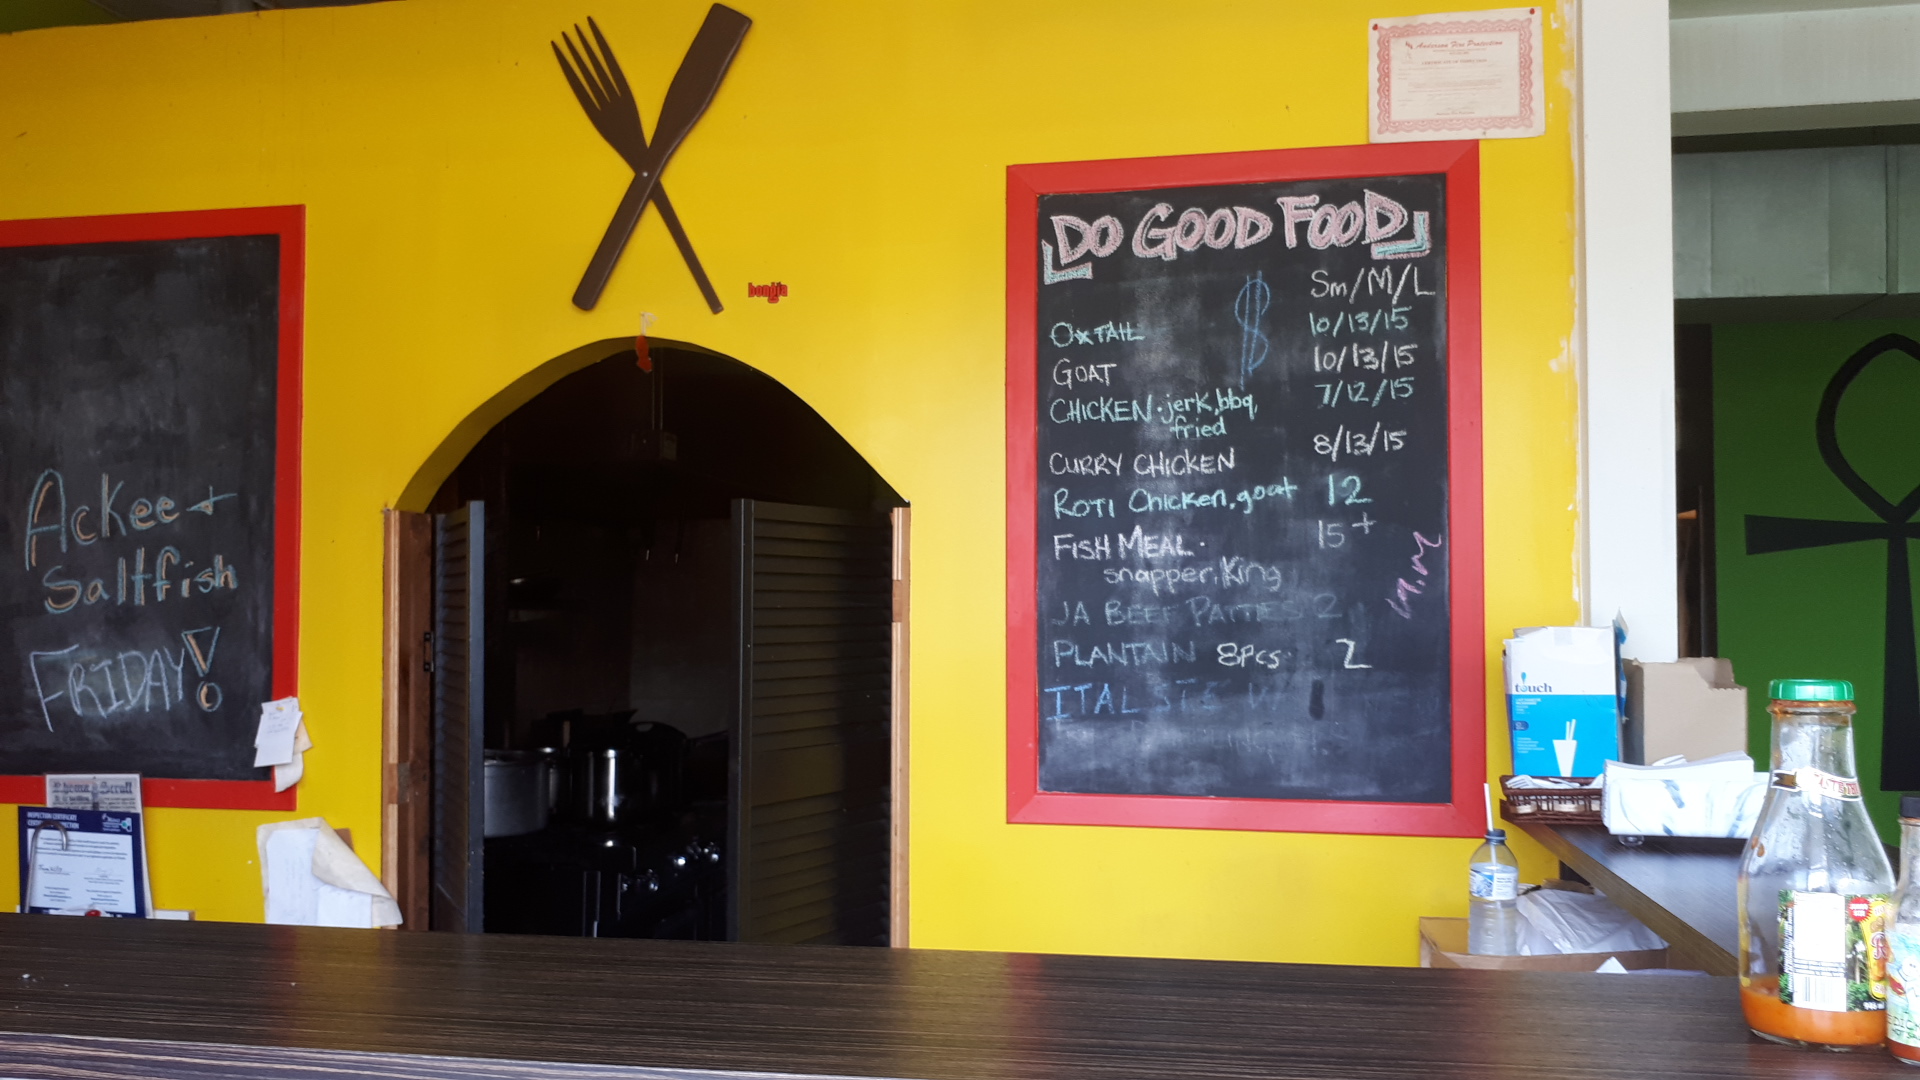 Ackee +
Saltfish
FRIDAY!
bongia
INSPECTION CERTIFICATE
Anderson Fire Protection
DO GOOD FOOD
$ Sm/M/L
OXTAIL 10/13/15
GOAT 10/13/15
CHICKEN · jerk, bbq, 7/12/15
fried
CURRY CHICKEN 8/13/15
ROTI Chicken, goat 12
FISH MEAL · 15+
snapper, King
JA BEEF PATTIES 2
PLANTAIN 8pcs 2
ITAL
touch